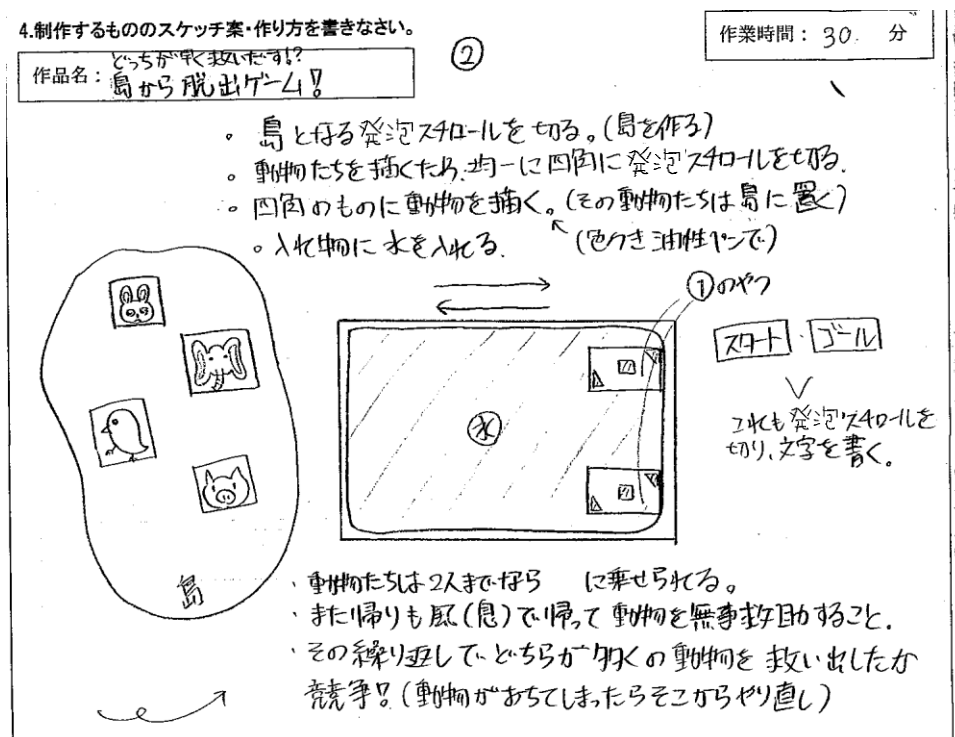 4.制作するもののスケッチ案・作り方を書きなさい。
作業時間: 30. 分
②
作品名: どっちが早く救いだす!?
島から脱出ゲーム!
。島となる発泡スチロールを切る。(島を作る)
。動物たちを描くため、均一に四角に発泡スチロールを切る.
。四角のものに動物を描く。(その動物たちは島に置く)
(色つき油性ペンで)
。入れ物に水を入れる.
①のやつ
スタート・ゴール
これも発泡スチロールを
切り、文字を書く。
水
島
・動物たちは2人までなら に乗せられてる。
・また帰りも風(息)で帰って動物を無事救助すること.
・その繰り返しで、どちらが多くの動物を救い出したか
競争!!(動物がおちてしまったらそこからやり直し)